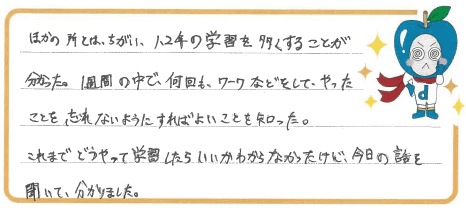 ほかの所とは、ちがい、1、2年の学習を多くすることが
分かった。1週間の中で、何回も、ワークなどをして、やった
ことを忘れないようにすればよいことを知った。
これまでどうやって学習したらいいかわからなかったけど、今日の話を
聞いて、分かりました。
d